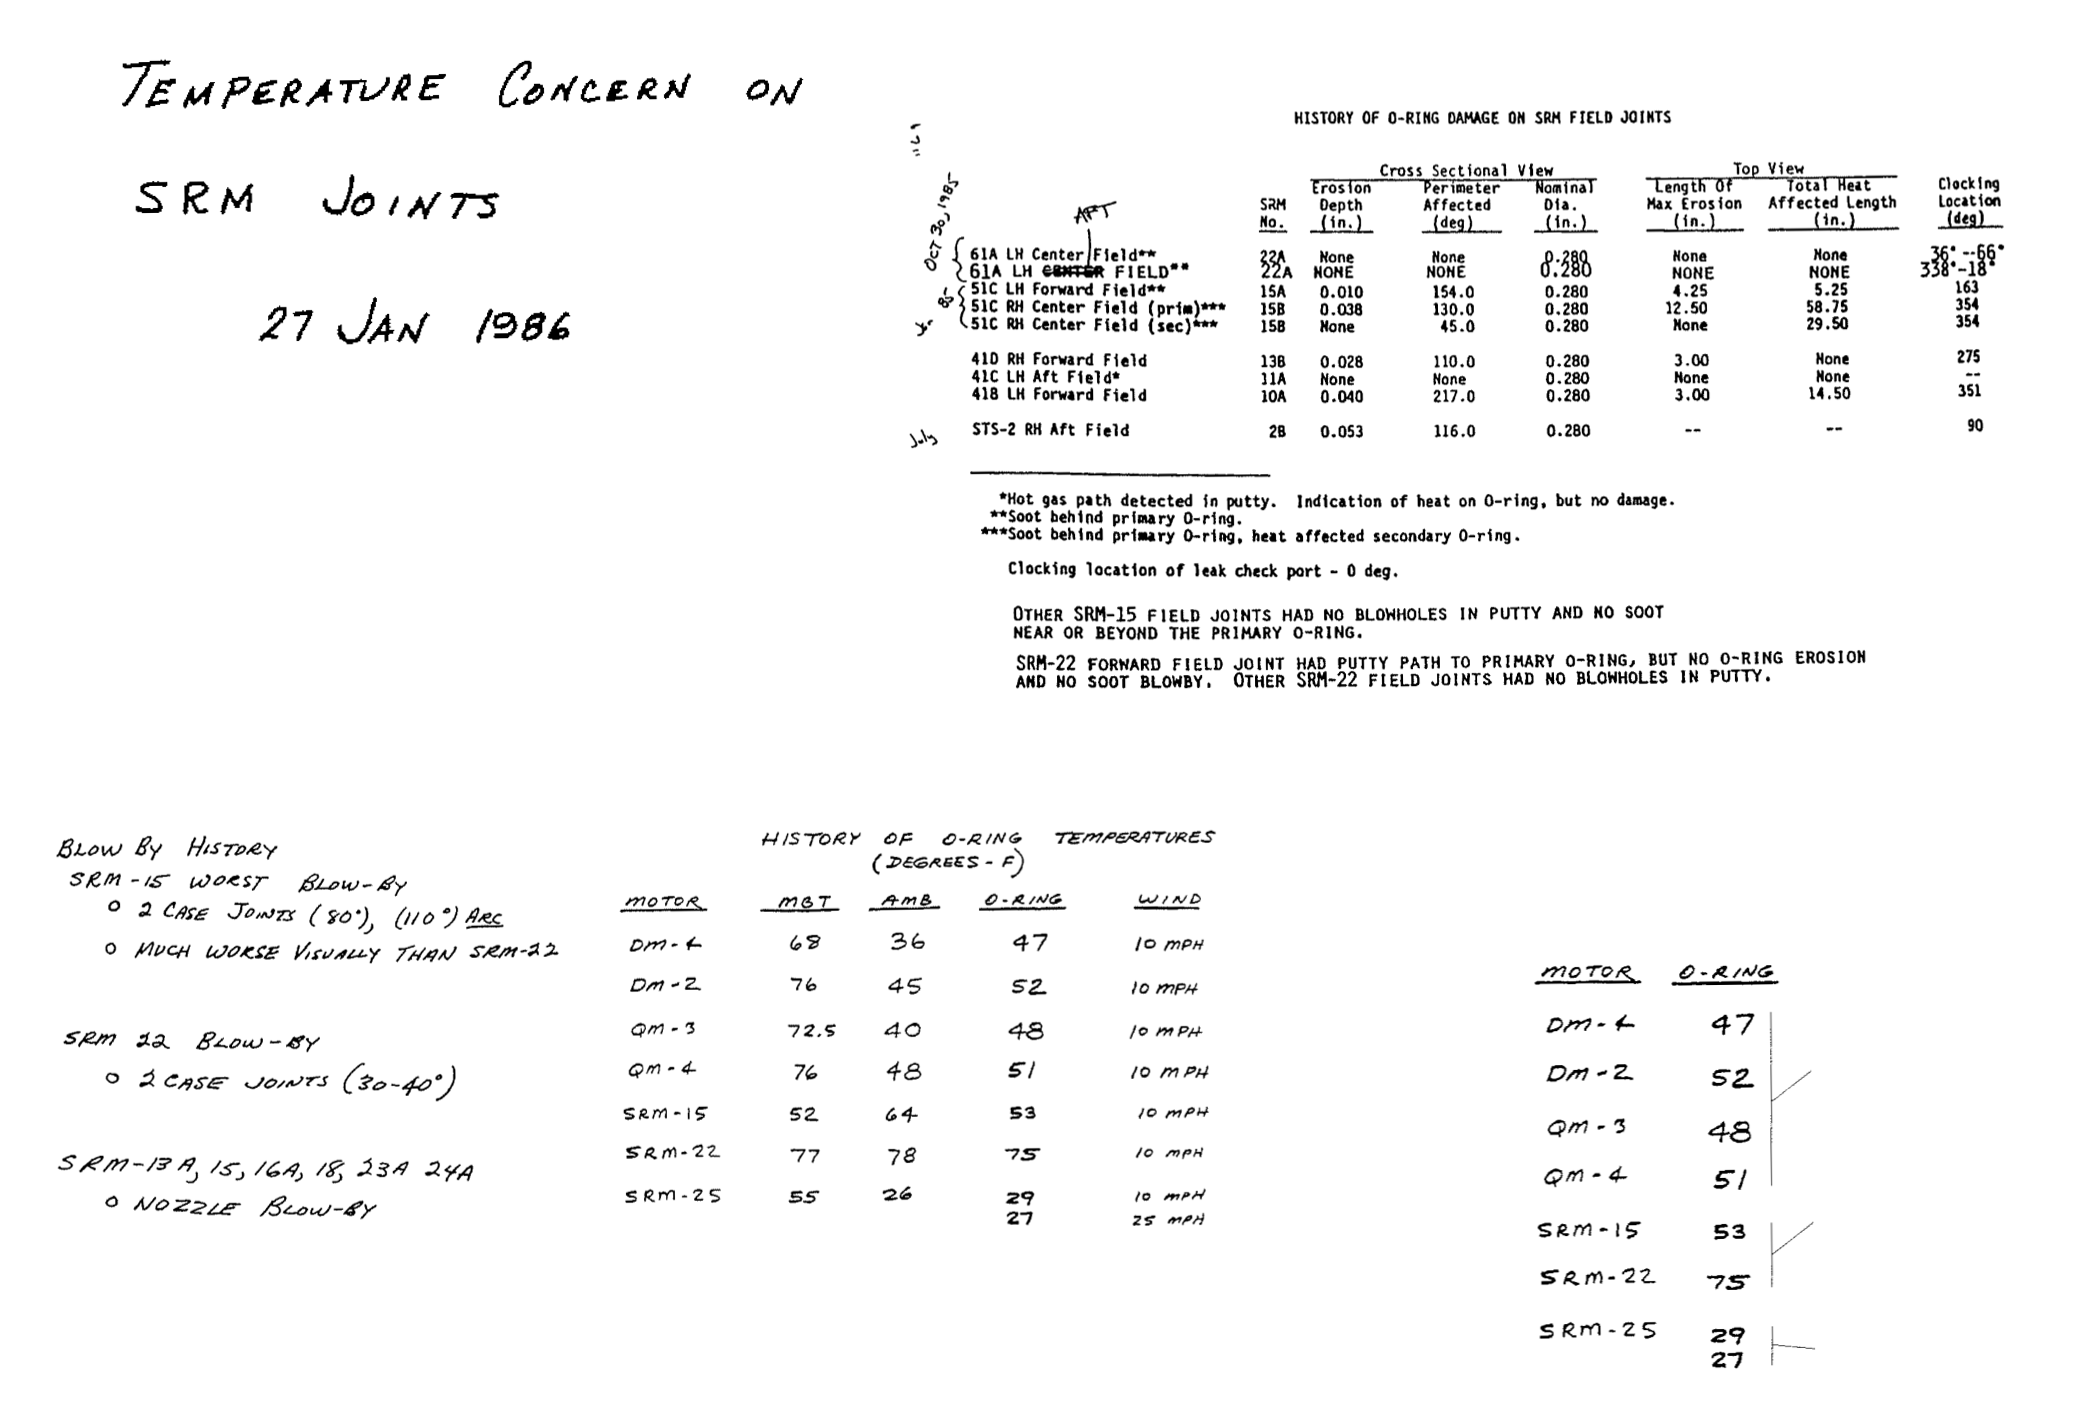 TEMPERATURE CONCERN ON
SRM JOINTS
27 JAN 1986
HISTORY OF O-RING DAMAGE ON SRM FIELD JOINTS
Cross Sectional View Top View
Erosion Perimeter Nominal Length Of Total Heat Clocking
SRM Depth Affected Dia. Max Erosion Affected Length Location
No. (in.) (deg) (in.) (in.) (in.) (deg)
OCT 30, 1985
AFT
61A LH Center Field** 22A None None 0.280 None None 36°--66°
61A LH CENTER FIELD** 22A NONE NONE 0.280 NONE NONE 338°-18°
51C LH Forward Field** 15A 0.010 154.0 0.280 4.25 5.25 163
85
51C RH Center Field (prim)*** 15B 0.038 130.0 0.280 12.50 58.75 354
51C RH Center Field (sec)*** 15B None 45.0 0.280 None 29.50 354
41D RH Forward Field 13B 0.028 110.0 0.280 3.00 None 275
41C LH Aft Field* 11A None None 0.280 None None --
41B LH Forward Field 10A 0.040 217.0 0.280 3.00 14.50 351
July
STS-2 RH Aft Field 2B 0.053 116.0 0.280 -- -- 90
*Hot gas path detected in putty. Indication of heat on O-ring, but no damage.
**Soot behind primary O-ring.
***Soot behind primary O-ring, heat affected secondary O-ring.
Clocking location of leak check port - 0 deg.
OTHER SRM-15 FIELD JOINTS HAD NO BLOWHOLES IN PUTTY AND NO SOOT
NEAR OR BEYOND THE PRIMARY O-RING.
SRM-22 FORWARD FIELD JOINT HAD PUTTY PATH TO PRIMARY O-RING, BUT NO O-RING EROSION
AND NO SOOT BLOWBY. OTHER SRM-22 FIELD JOINTS HAD NO BLOWHOLES IN PUTTY.
BLOW BY HISTORY
SRM-15 WORST BLOW-BY
o 2 CASE JOINTS (80°), (110°) ARC
o MUCH WORSE VISUALLY THAN SRM-22
SRM 22 BLOW-BY
o 2 CASE JOINTS (30-40°)
SRM-13A, 15, 16A, 18, 23A 24A
o NOZZLE BLOW-BY
HISTORY OF O-RING TEMPERATURES
(DEGREES - F)
MOTOR MBT AMB O-RING WIND
DM-4 68 36 47 10 MPH
DM-2 76 45 52 10 MPH
QM-3 72.5 40 48 10 MPH
QM-4 76 48 51 10 MPH
SRM-15 52 64 53 10 MPH
SRM-22 77 78 75 10 MPH
SRM-25 55 26 29 10 MPH
27 25 MPH
MOTOR O-RING
DM-4 47
DM-2 52
QM-3 48
QM-4 51
SRM-15 53
SRM-22 75
SRM-25 29
27